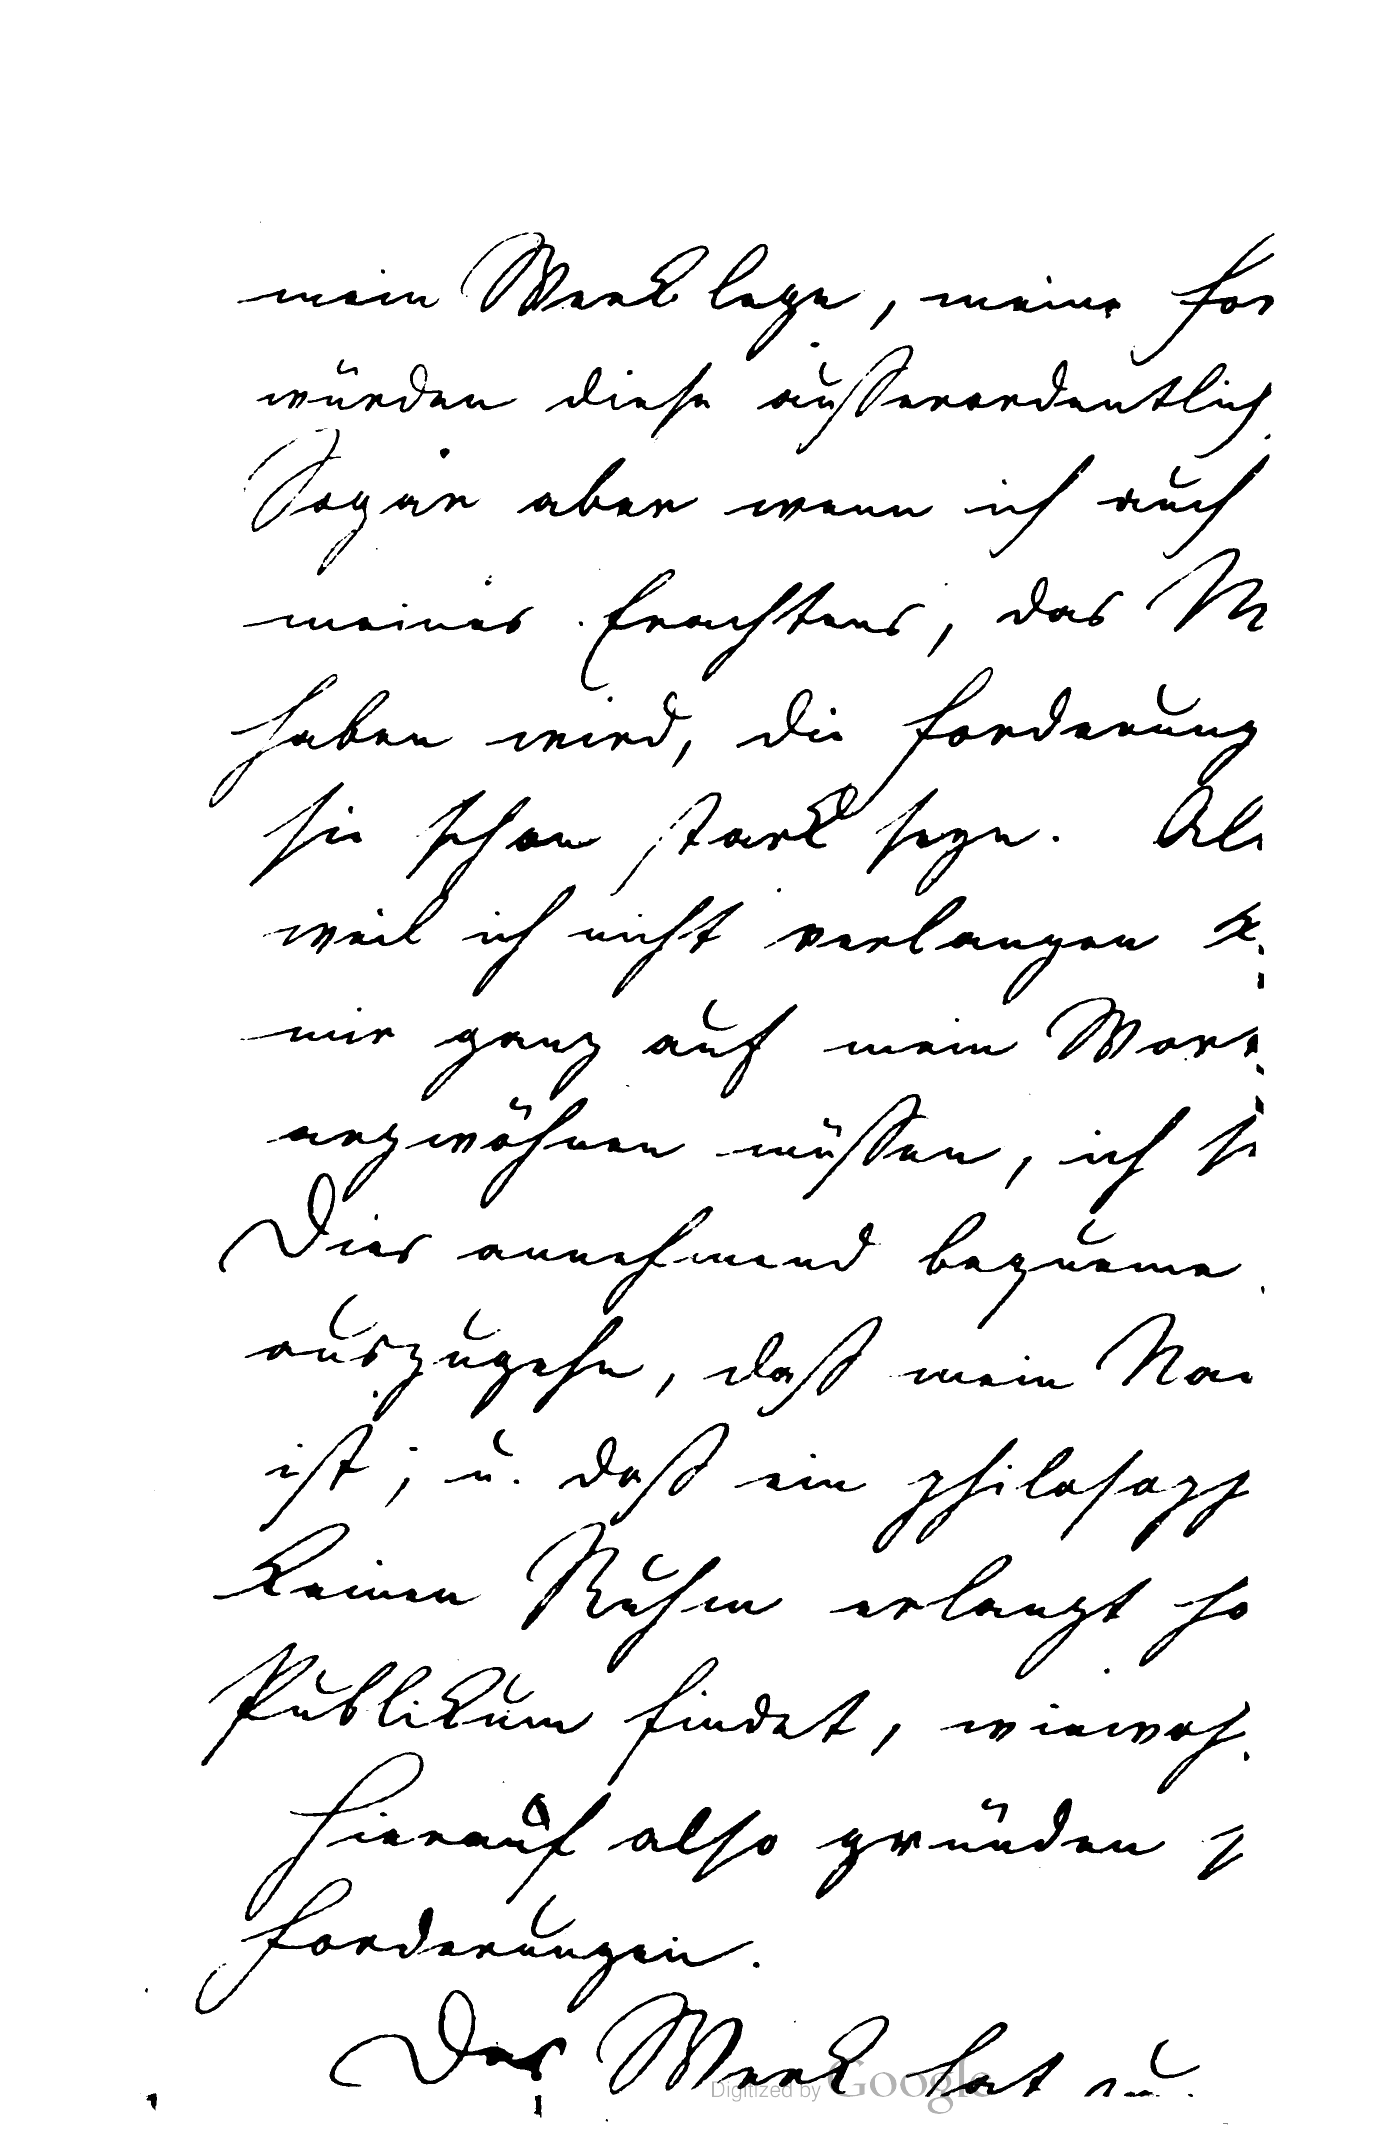 mein Werk lege, meine For
würden diese außerordentlich
Sogar aber wenn ich auch
meines Erachtens, das M
haben wird, die Forderung
sie schon stark seyn. Als
weil ich nicht verlangen k
mir ganz auf mein Wort
argwöhnen müssen, ich se
Dies annehmend bequeme
auszugehn, daß mein Na
ist; u. daß ein philosoph
keinen Ruhm erlangt ha
Publikum findet, wiewoh
Hierauf also gründen
Forderungen.
Das Werk hat
Digitized by Google